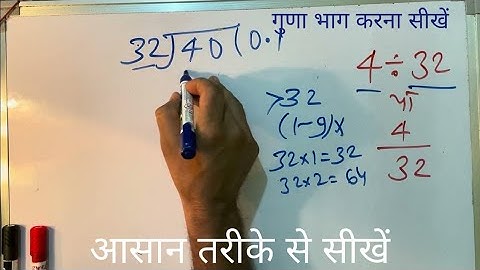 गुणा भाग करना सीखें
32)40(0.1
4÷32
या
4
32
>32
(1-9)x
32x1=32
32x2=64
आसान तरीके से सीखें